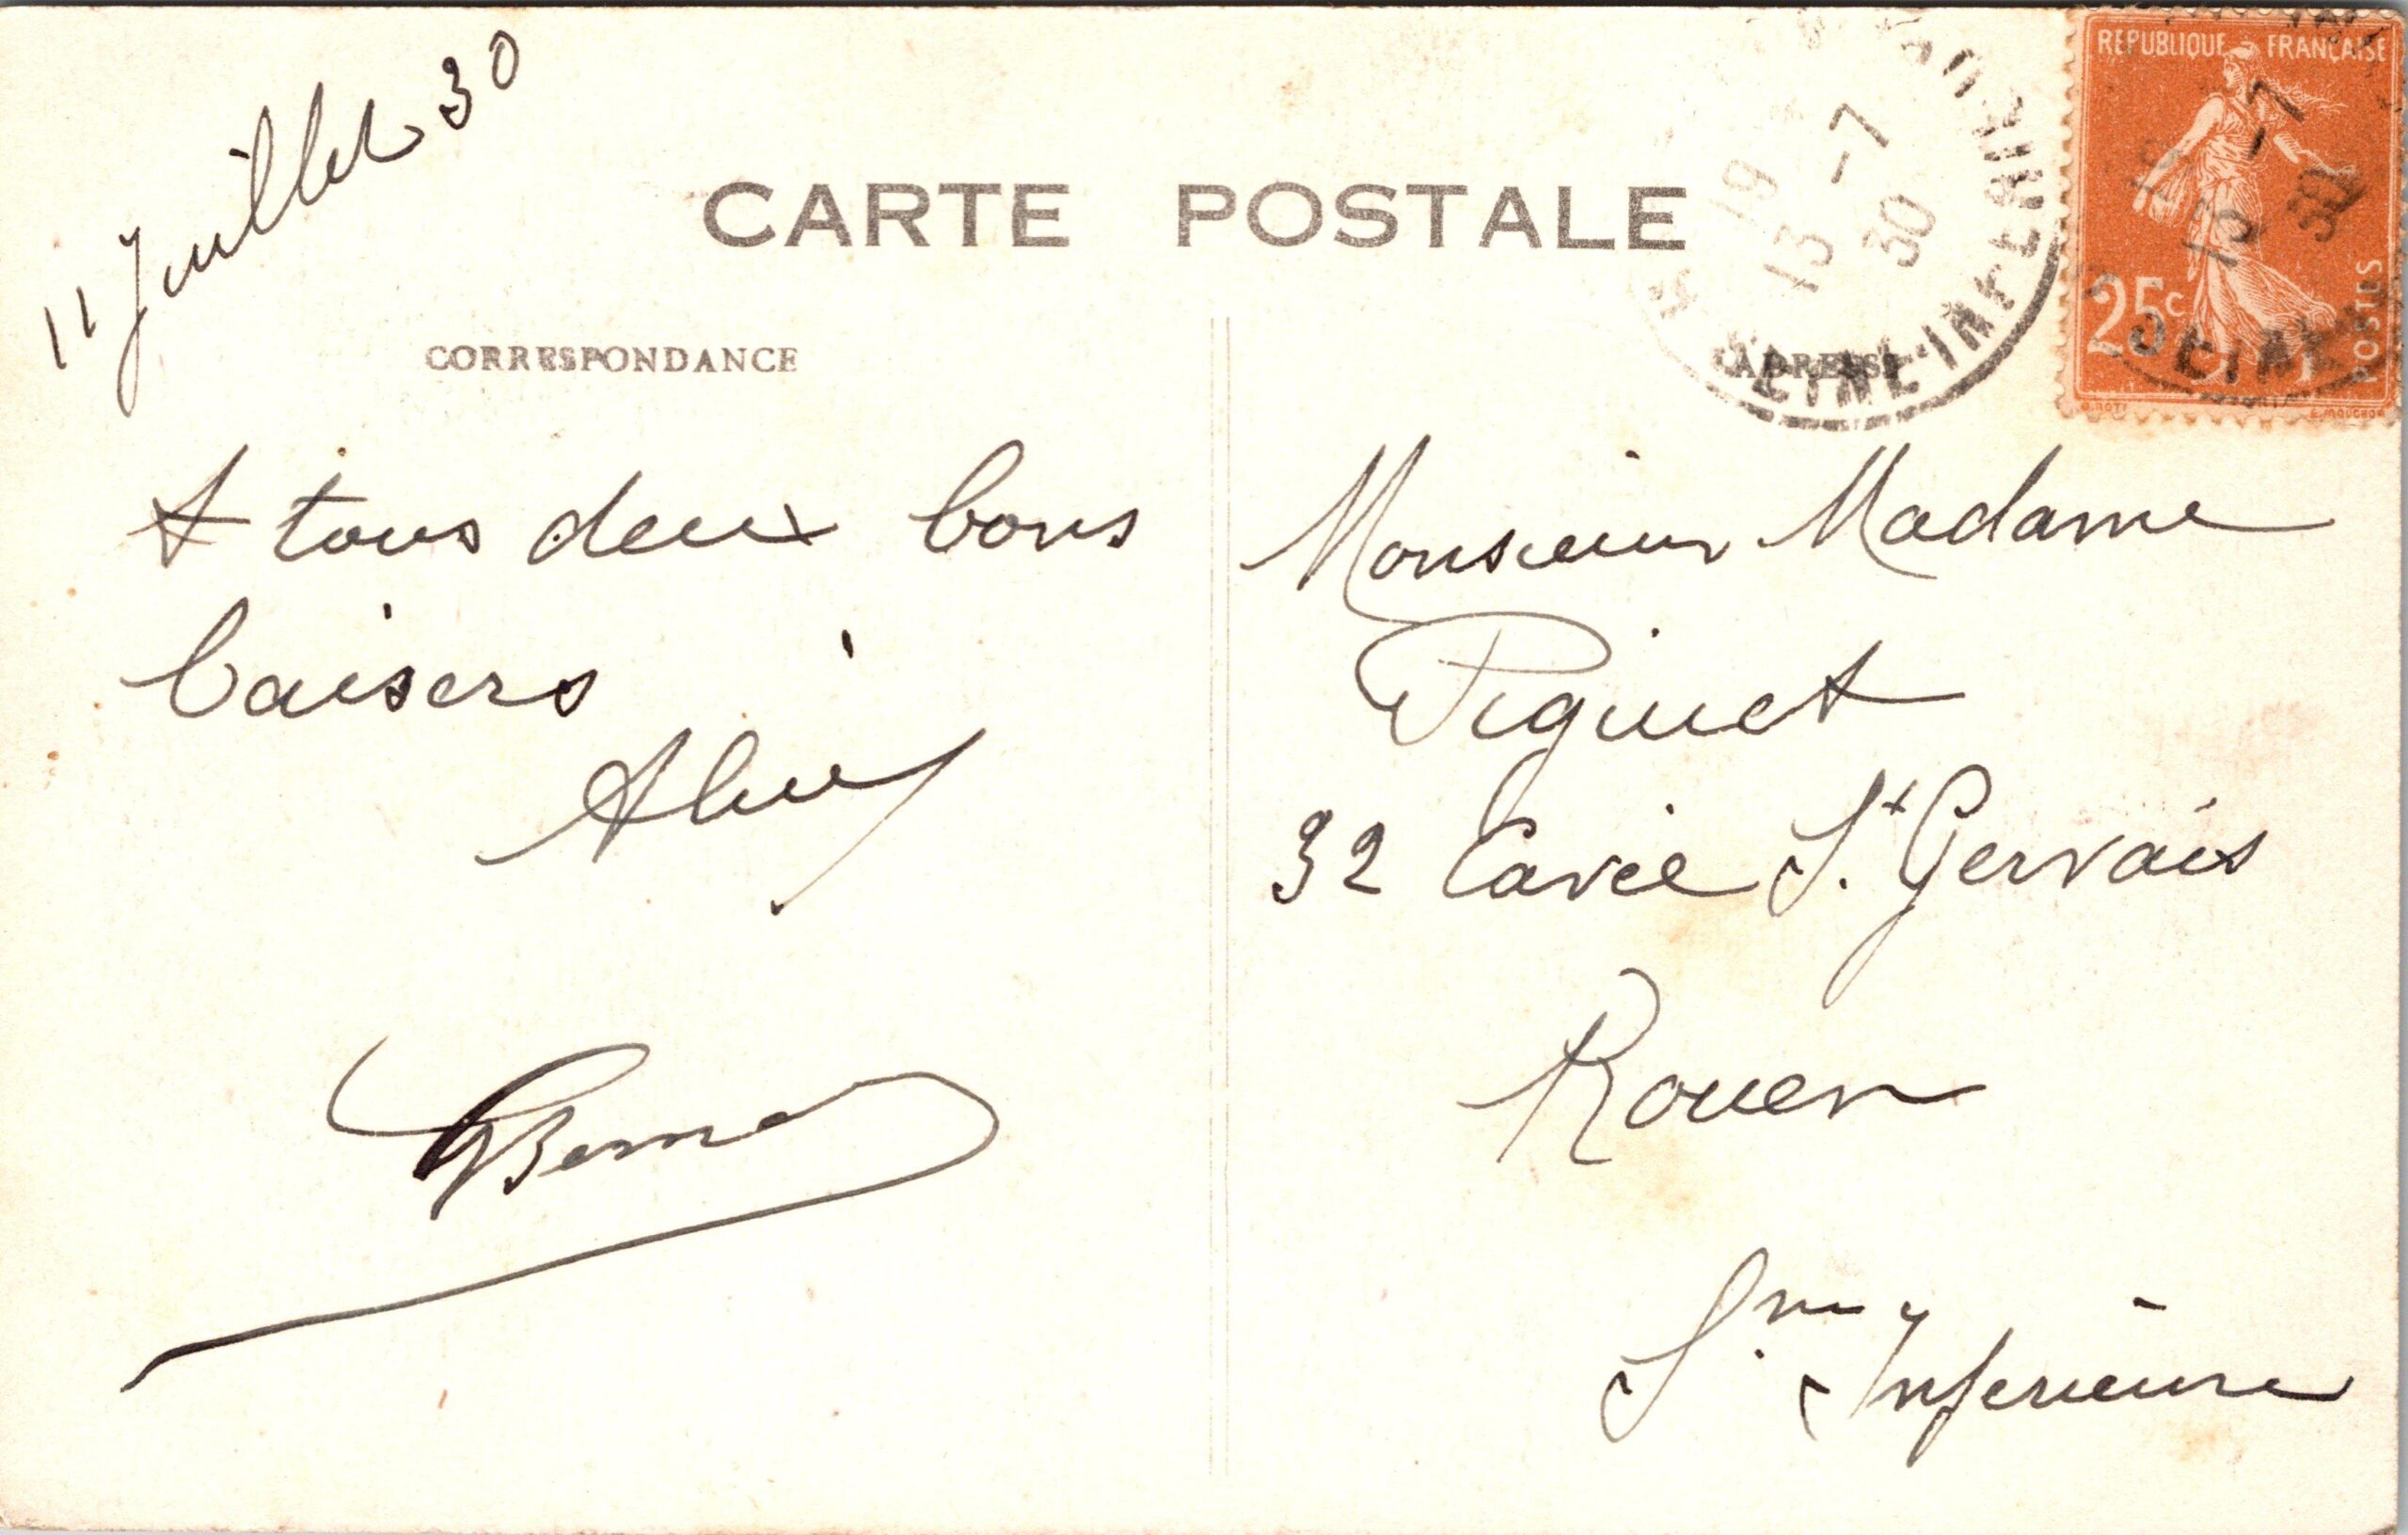 11 Juillet 30
CARTE POSTALE
CORRESPONDANCE
ADRESSE
REPUBLIQUE FRANÇAISE
25c
POSTES
19
13 -7
30
SEINE-INFRE
A tous deux bons
baisers
Monsieur Madame
Piquet
32 Cavée St. Gervais
Rouen
Sne Inférieure